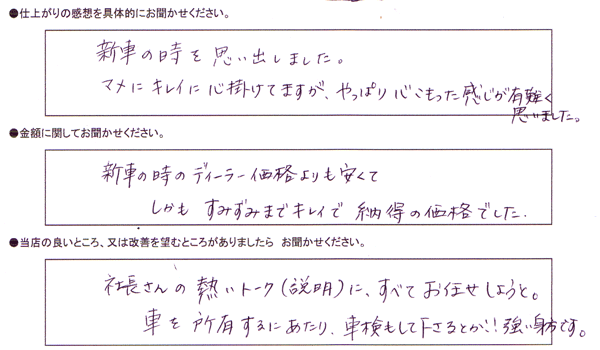 ●仕上がりの感想を具体的にお聞かせください。
新車の時を思い出しました。
マメにキレイに心掛けてますが、やっぱり心こもった感じが有難く
思いました。
●金額に関してお聞かせください。
新車の時のディーラー価格よりも安くて
しかもすみずみまでキレイで納得の価格でした.
●当店の良いところ、又は改善を望むところがありましたら お聞かせください。
社長さんの熱いトーク(説明)に、すべてお任せしようと。
車を所有するにあたり、車検もして下さるとか!!強い身方です。